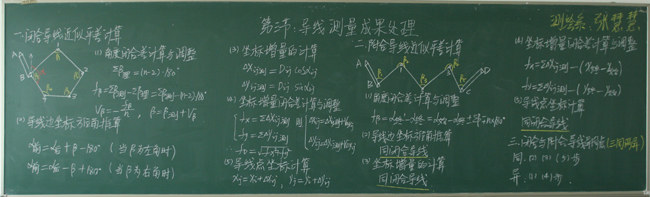 第三节：导线测量成果处理
测绘系 张慧慧
一.闭合导线近似平差计算
(1) 角度闭合差计算与调整
Σβ理=(n-2)·180°
fβ=Σβ测-Σβ理=Σβ测-(n-2)·180°
Vβ=-fβ/n, β=β测+Vβ
(2) 导线边坐标方位角推算
α前=α后+β-180° (当β为左角时)
α前=α后-β+180° (当β为右角时)
(3) 坐标增量的计算
ΔXij测=Dij cosαij
ΔYij测=Dij sinαij
(4) 坐标增量闭合差计算与调整
fx=ΣΔXij测
fy=ΣΔYij测
则
(5) 导线点坐标计算
Xj=Xi+ΔXij, Yj=Yi+ΔYij
二.附合导线近似平差计算
(1) 角度闭合差计算与调整
(2) 导线边坐标方位角推算
同闭合导线
(3) 坐标增量的计算
同闭合导线
(4) 坐标增量闭合差计算与调整
fx=ΣΔXij测-(X终-X始)
fy=ΣΔYij测-(Y终-Y始)
(5) 导线点坐标计算
同闭合导线
三.闭合与附合导线的同点
同: (2) (3) (5) 步
异: (1) (4) 步.